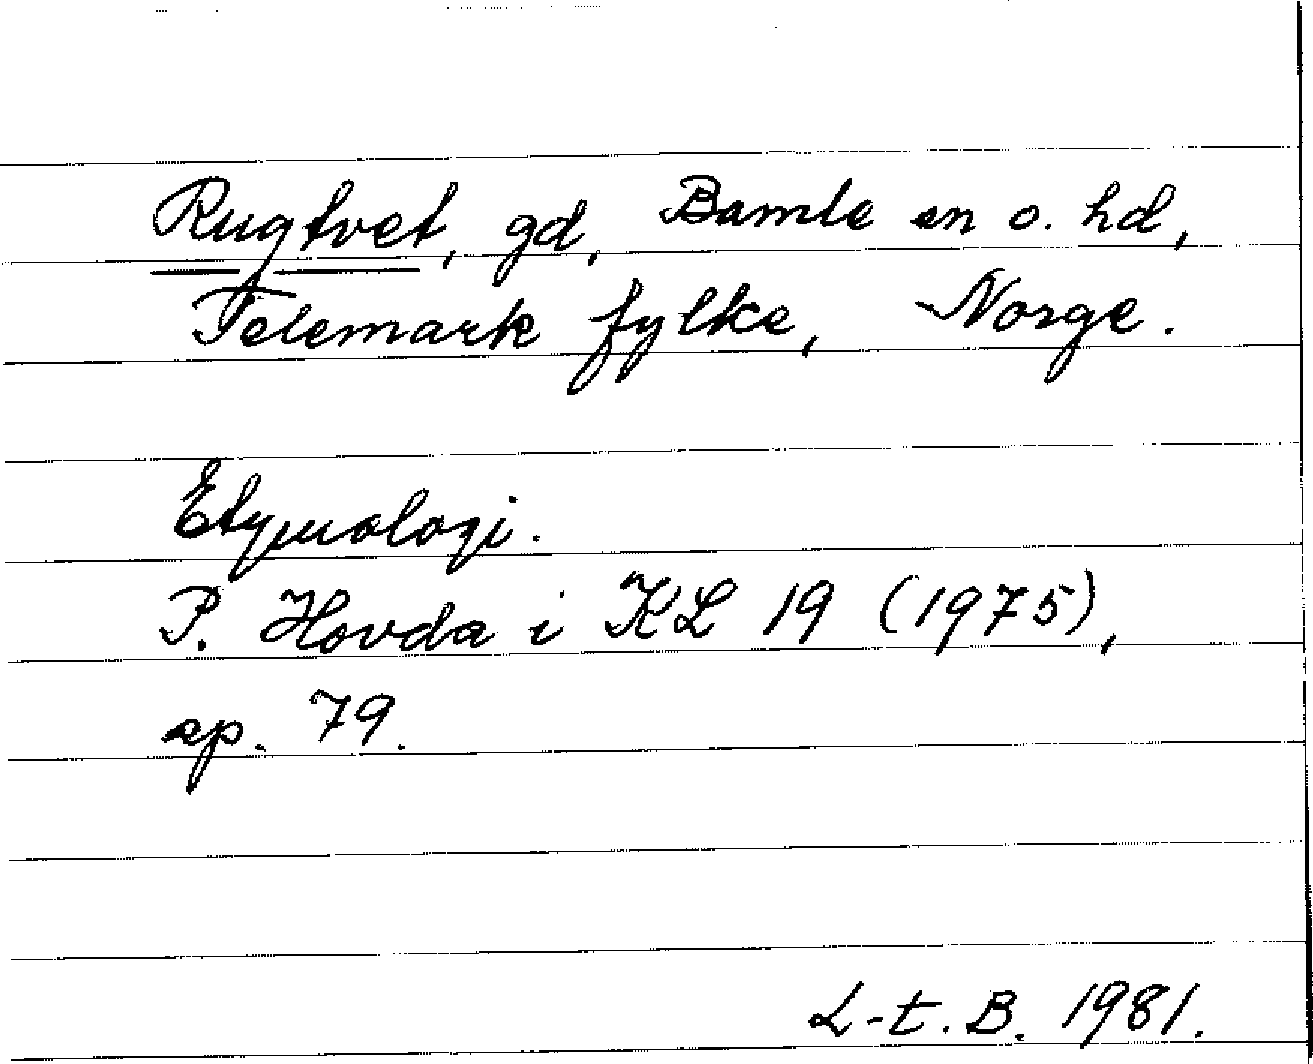 Rugtvet, gd, Bamle sn o. hd,
Telemark fylke, Norge.
Etymologi.
P. Hovda i KL 19 (1975),
sp. 79.
L-t. B. 1981.